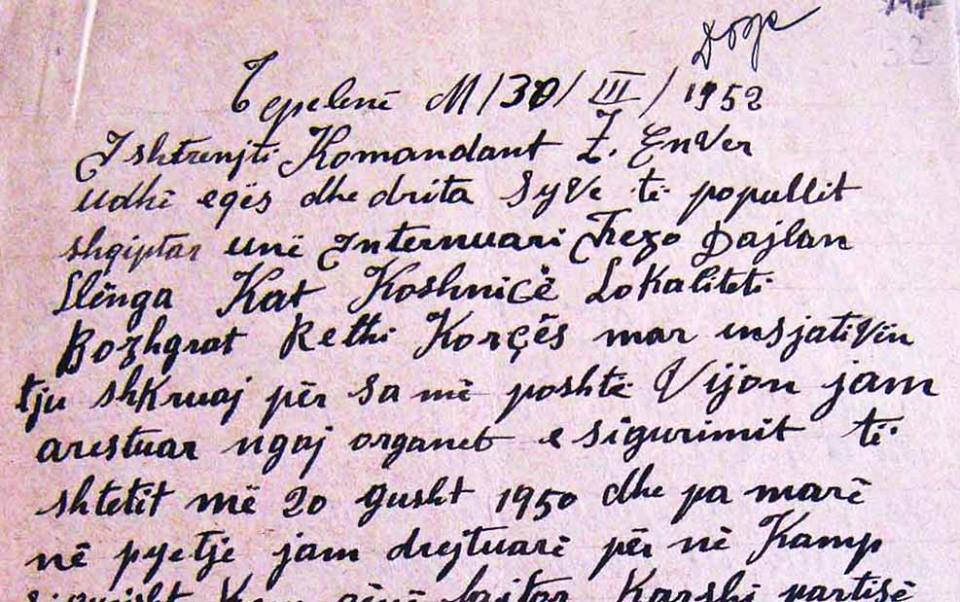 Tepelenë M/30/III/1952
I shtrenjti Komandant Z. Enver
udhë eqës dhe drita syve të popullit
shqiptar unë Internuari Rezo Dajlan
Llënga Kat Koshnicë Lokaliteti
Bozhgrat Rethi Korçës mar insjativin
tju shkruaj për sa më poshtë Vijon jam
arestuar ngaj organet e sigurimit të
shtetit më 20 gusht 1950 dhe pa marë
në pyetje jam drejtuarë për në Kamp
Karshi partisë